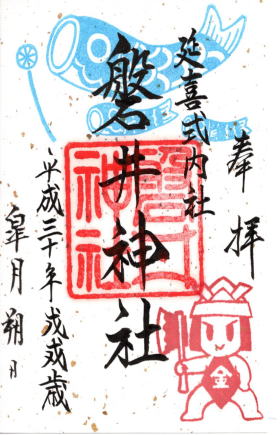 奉拝
延喜式内社
磐井神社
磐井神社
平成三十年戊戌歳
皐月朔日
金